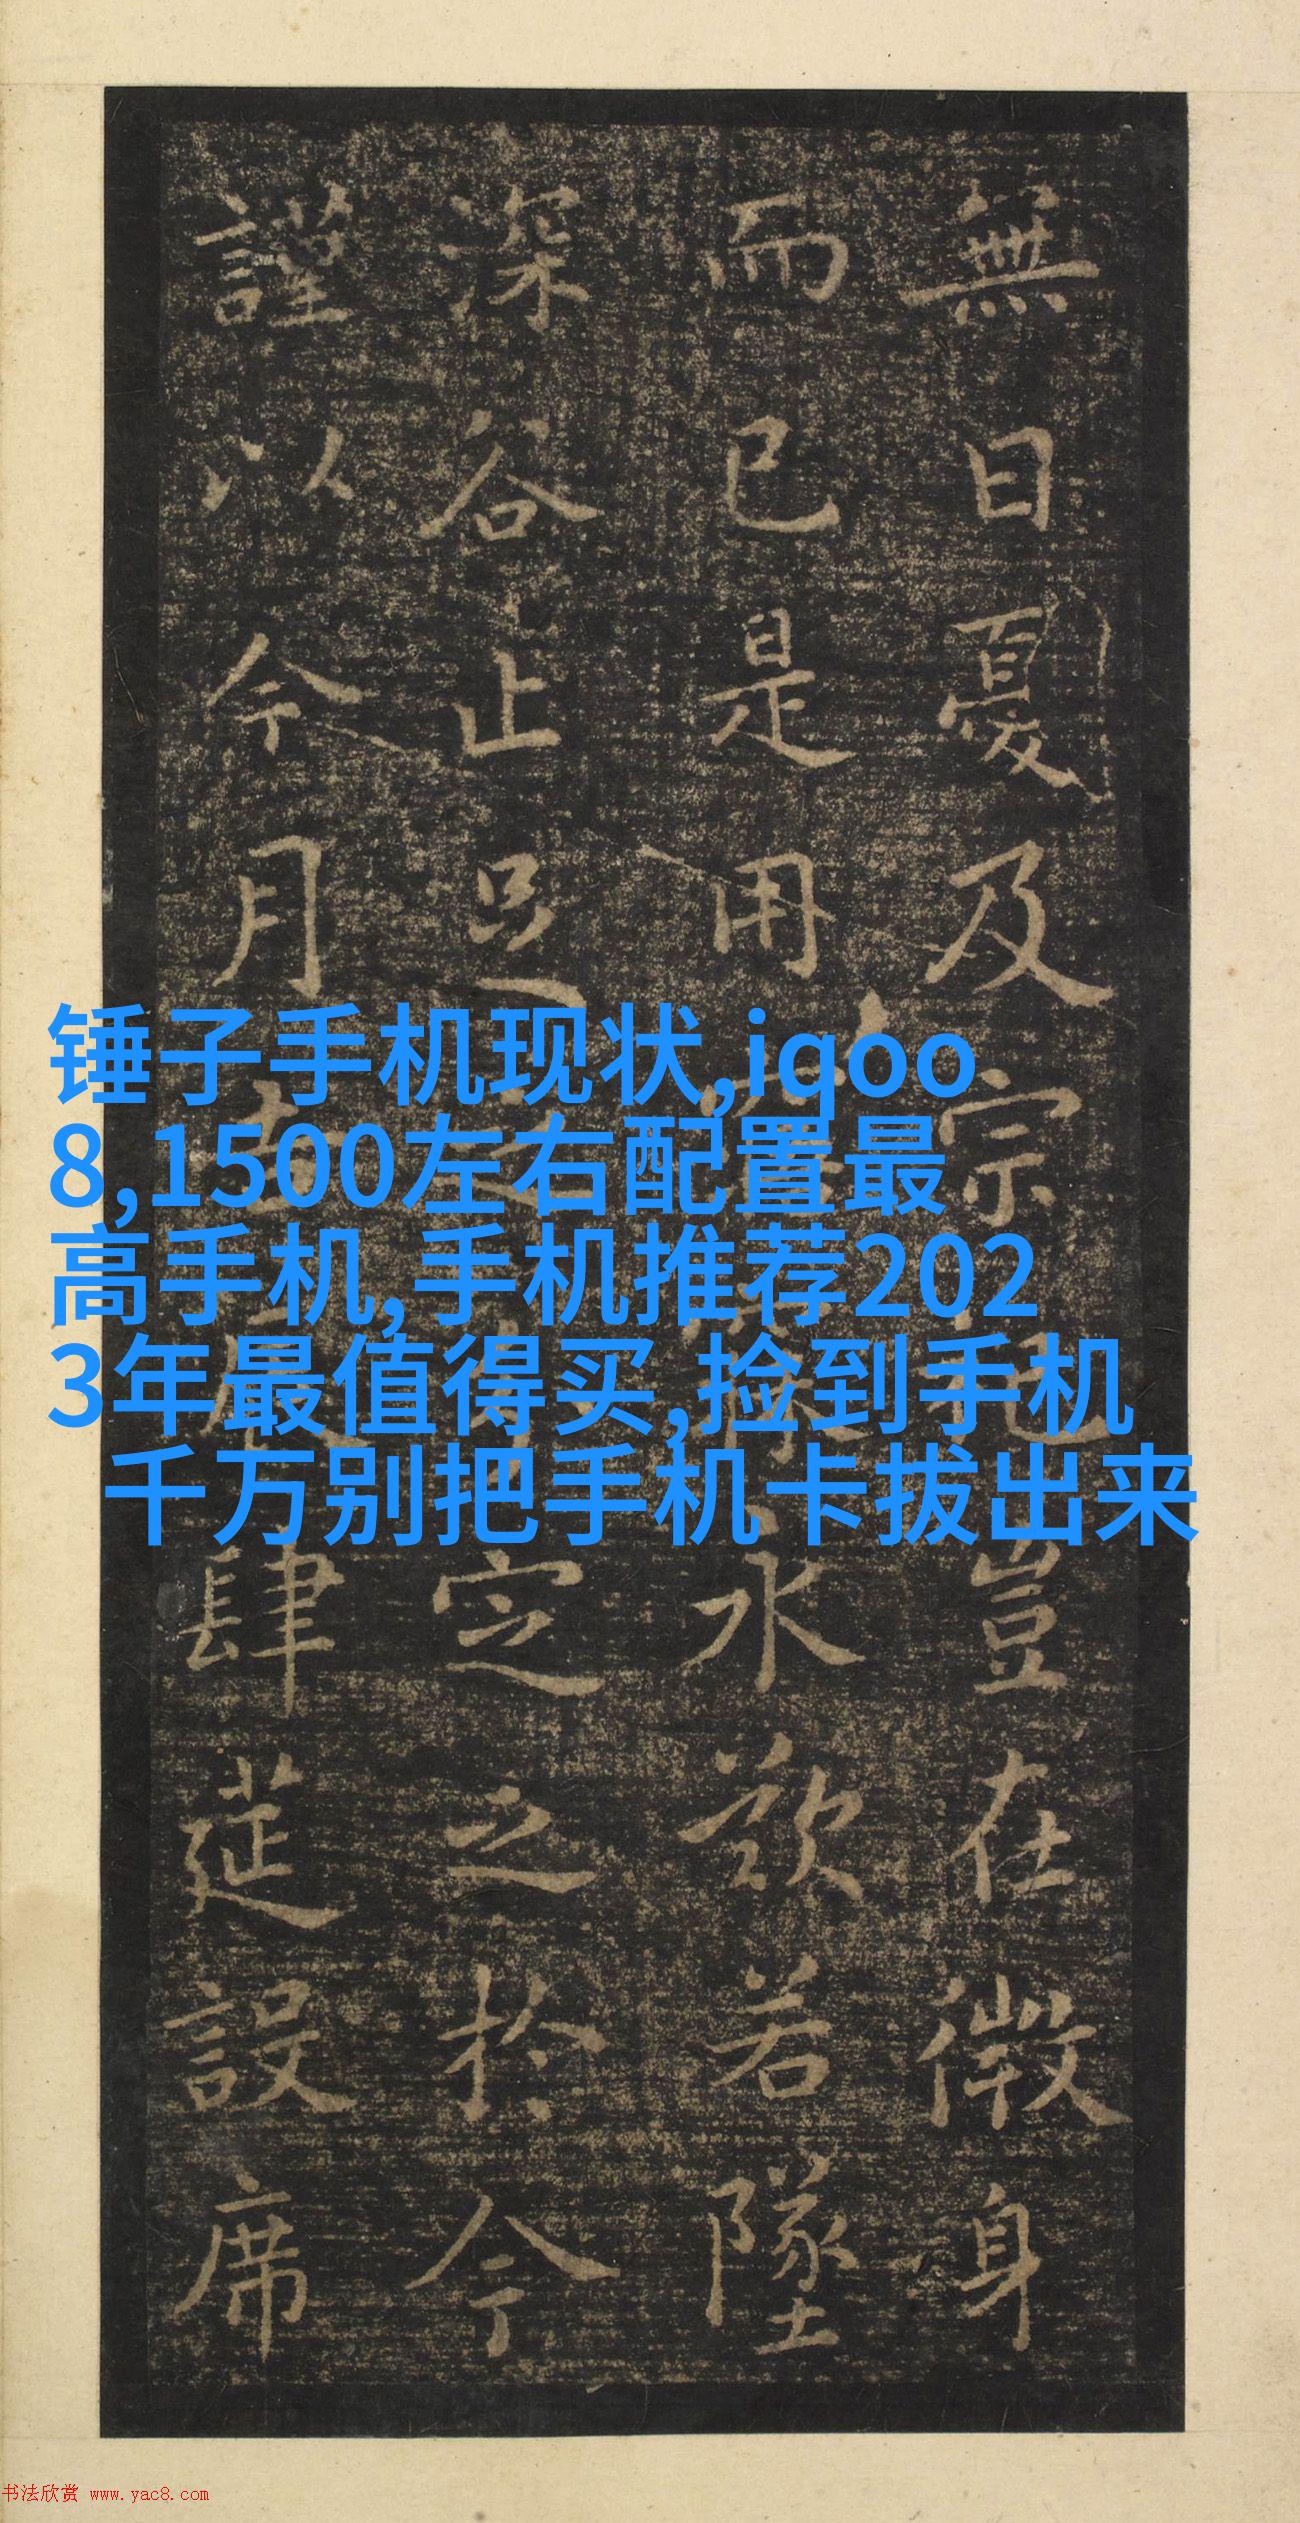 無日憂及宗祀豈在微身
而已是用寤寐永歎若墜
深谷止足之分定之於今
謹以今月吉辰肆筵設席
锤子手机现状,iqoo
8,1500左右配置最
高手机,手机推荐202
3年最值得买,捡到手机
千万别把手机卡拔出来
书法欣赏 www.yac8.com